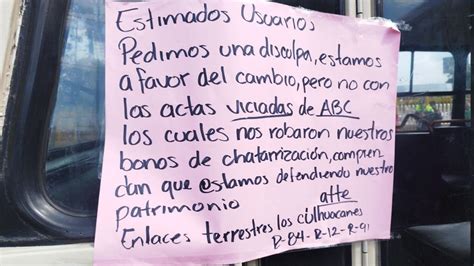 Estimados Usuarios
Pedimos una disculpa, estamos
a favor del cambio, pero no con
las actas viciadas de ABC
los cuales nos robaron nuestros
bonos de chatarrización, compren
dan que estamos defendiendo nuestro
patrimonio
atte
Enlaces terrestres los culhuacanes
R-84-R-12-R-91